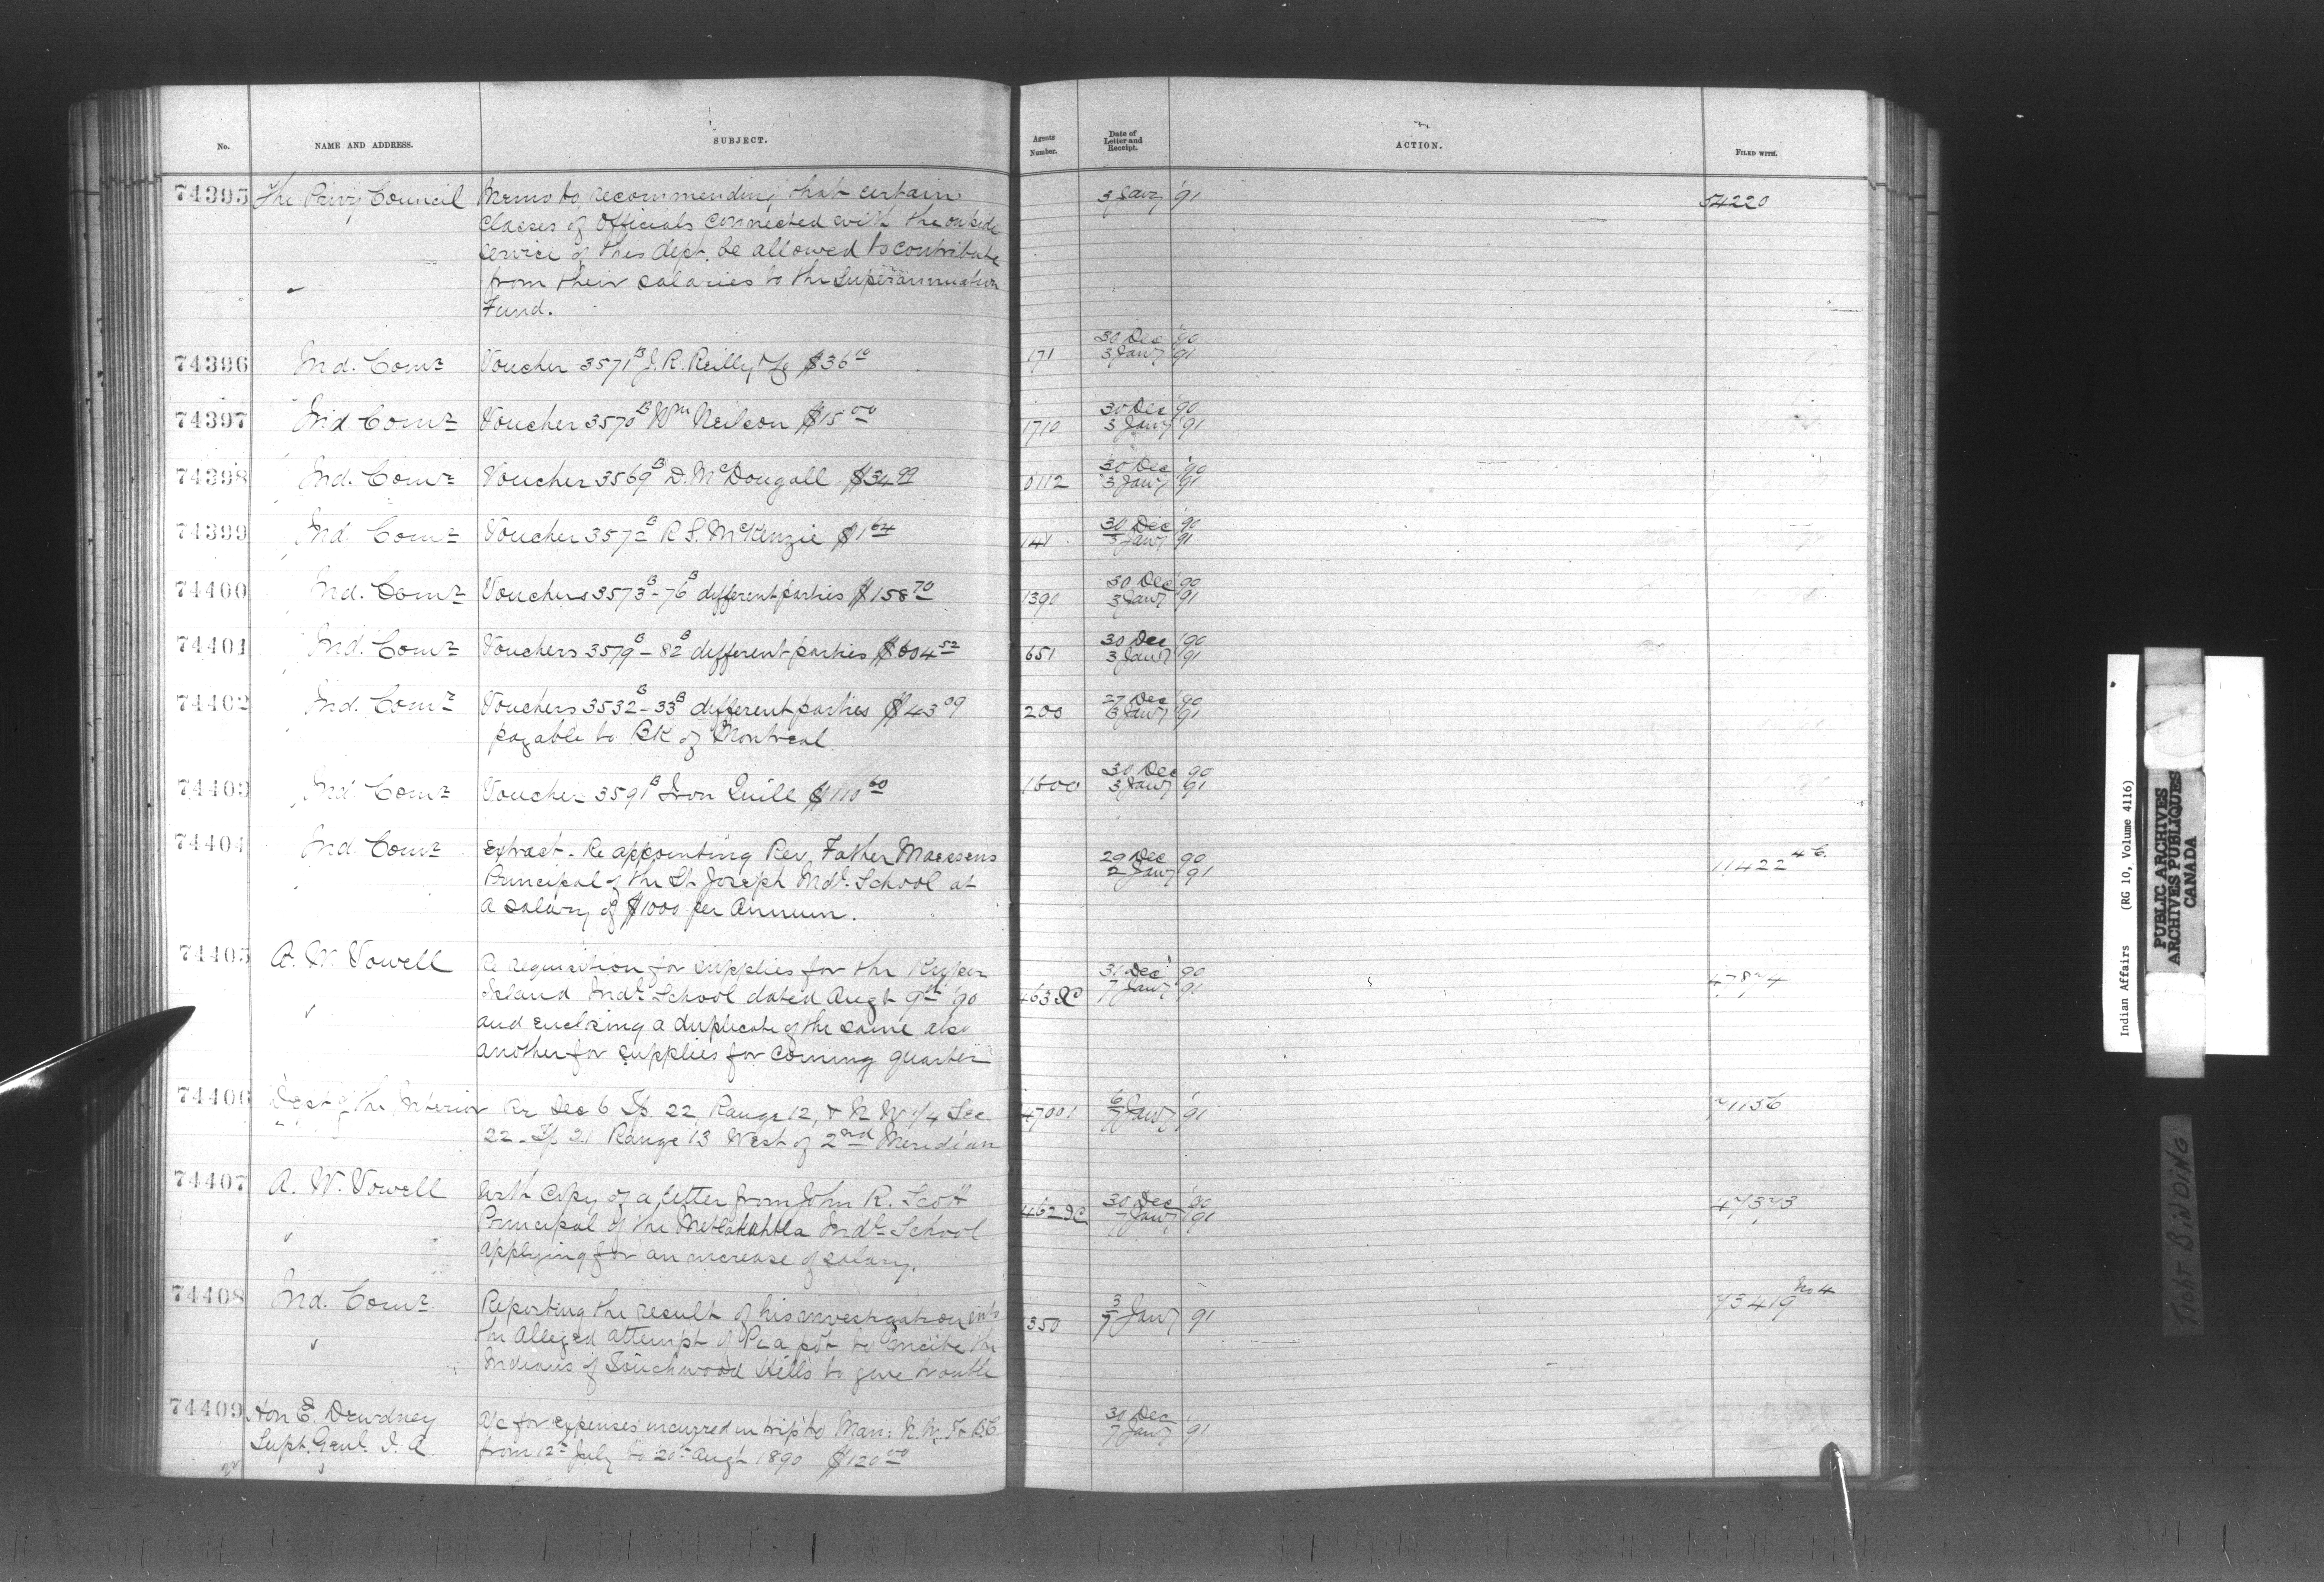 No. NAME AND ADDRESS. SUBJECT. Agents Number. Date of Letter and Receipt. ACTION. FILED WITH.
74395 The Privy Council Memo to, recommending that certain 3 Jany '91 54220
classes of Officials connected with the outside
service of this dept. be allowed to contribute
from their salaries to the Superannuation
Fund.
74396 Ind. Comr Voucher 3571 B J. R. Reilly $36 10 171 30 Dec '90
3 Jany '91
74397 Ind Comr Voucher 3570 B Wm Neilson $15 00 1710 30 Dec '90
3 Jany '91
74398 Ind. Comr Voucher 3569 B D. McDougall $34 99 0112 30 Dec '90
3 Jany '91
74399 Ind. Comr Voucher 357 B R S. McKenzie $1 64 141 30 Dec '90
3 Jany '91
74400 Ind. Comr Vouchers 3573 B - 76 B different parties $158 70 1390 30 Dec '90
3 Jany '91
74401 Ind. Comr Vouchers 3579 B - 82 B different parties $604 52 651 30 Dec '90
3 Jany '91
74402 Ind. Comr Vouchers 3532 B - 33 B different parties $43 09 200 27 Dec '90
3 Jany '91
payable to BK of Montreal
74403 Ind Comr Voucher 3591 B Iron Quill $110 60 1600 30 Dec 90
3 Jany '91
74404 Ind. Comr Extract - Re appointing Rev. Father Maessens 29 Dec 90 11422 4 C.
2 Jany '91
Principal of the St Joseph Indl. School at
a salary of $1000 per Annum.
74405 A. W. Vowell Re requisition for supplies for the Kuper 31 Dec '90
Island Indl School dated Augt 9th '90 7 Jany '91
and enclosing a duplicate of the same also
another for supplies for coming quarter
74406 Dept of the Interior Re Sec 6 Tp. 22 Range 12, & N W 1/4 Sec 47001 6 Jany '91 71156
7
22 - Tp 21 Range 13 West of 2nd Meridian
74407 A. W. Vowell With Copy of a letter from John R. Scott 30 Dec '90 47373
Principal of the Metlakahtla Indl School 462 7 Jany '91
applying for an increase of salary.
74408 Ind. Comr Reporting the result of his investigation into 350 3 Jany 91 73419 No 4
7
the Alleged attempt of Pea pot to incite the
Indians of Touchwood Hills to give trouble
74409 Hon E. Dewdney a/c for expenses incurred in trip to Man: N. W. T & B C 30 Dec
Supt. Genl. I. A from 12th July to 20th Augt 1890 $120 00 7 Jany '91
Indian Affairs (RG 10, Volume 4116)
PUBLIC ARCHIVES
ARCHIVES PUBLIQUES
CANADA
TIGHT BINDING